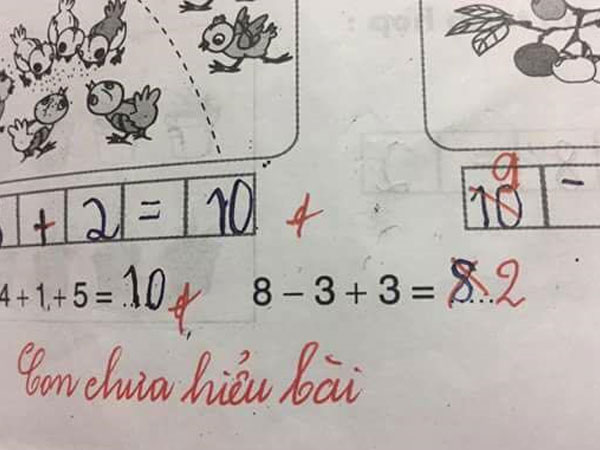 + 2 = 10
9
10 -
4 + 1 + 5 = 10
8 – 3 + 3 = 8 2
Con chưa hiểu bài